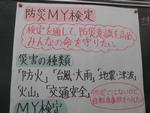 防災MY検定
検定を通して、防災意識を高め
みんなの命を守りたい。
災害の種類
「防火」「台風・大雨」「地震・津波」
火山」「交通安全」
MY検定